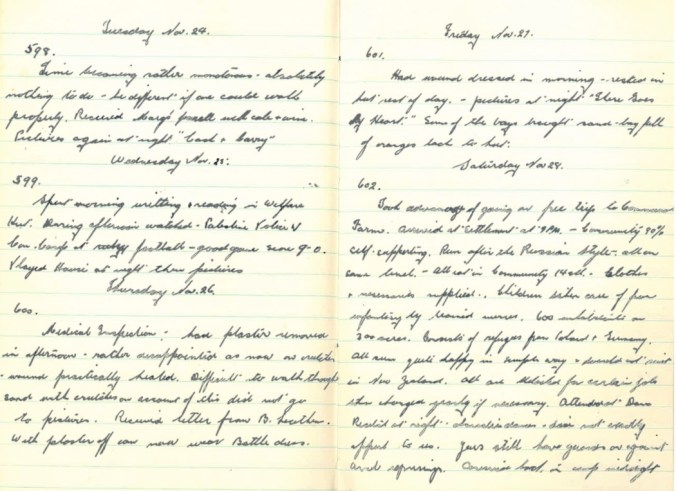 Tuesday Nov. 24.
598.
Time becoming rather monotonous - absolutely
nothing to do - be different if one could walk
properly. Received Marg's parcell with cake & wine.
Pictures again at night "Cash & Carry"
Wednesday Nov. 25.
599.
Spent morning writting & reading in Welfare
Hut. During afternoon watched - Palestine Police V
Con. Camp at football - good game score 9-0.
Played Housi at night then pictures
Thursday Nov. 26.
600.
Medical Inspection; had plaster removed
in afternoon - rather disappointing as now on crutches
- wound practically healed. Difficult to walk through
sand with crutches on account of this did not go
to pictures. Received letter from B.
With plaster off can now wear Battle dress.
Friday Nov. 27.
601.
Had wound dressed in morning - rested in
hut rest of day. - pictures at night "There Goes
My Heart." Some of the boys brought sand-bag full
of oranges back to hut.
Saturday Nov 28.
602.
Took advantage of going on free trip to Communal
Farms. Arrived at Settlement at - Community 90%
self-supporting. Run after the Russian Style - all on
same level. - All eat in Community - Clothes
& supplied. Children taken care of from
by trained nurses. 600 inhabitants on
300 acres. Consists of refugees from Poland & Germany.
All seem quite happy in simple way &
in New Zealand. All are elected for certain jobs
then changed yearly if necessary. Attended at Dance
Recital at night - dance did not exactly
appeal to us. Jews still have guards on against
Arab uprisings. Arrived back in camp midnight